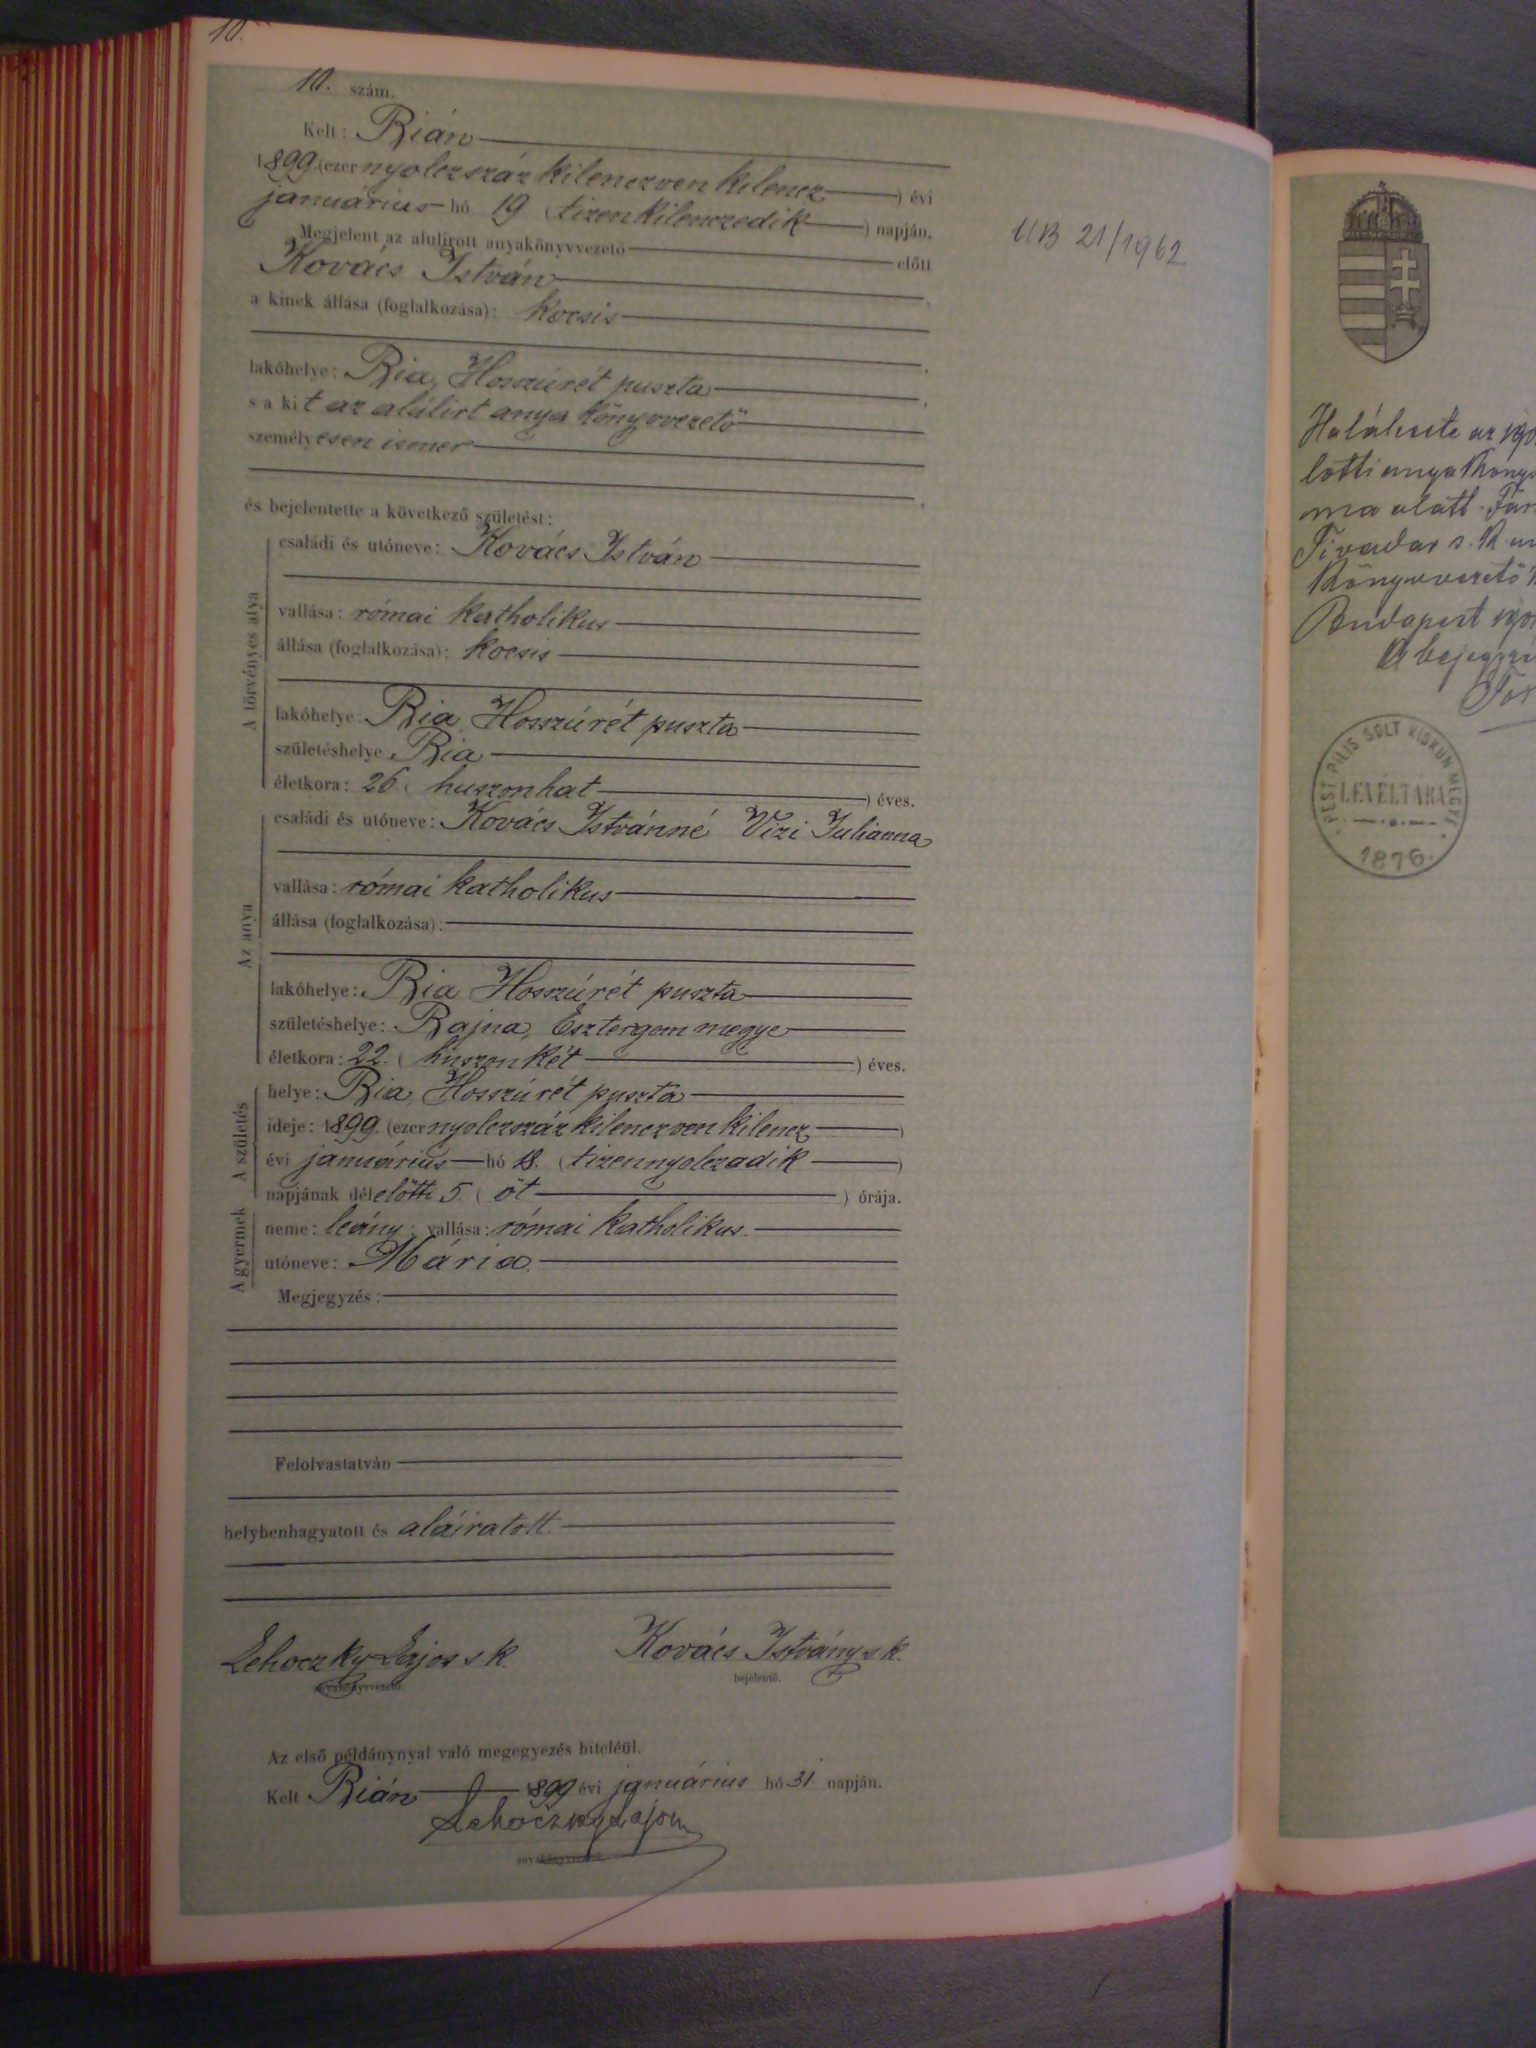 10.
10. szám.
Kelt: Bián
1899. (ezer nyolczszáz kilenczven kilencz) évi
januárius hó 19 (tizenkilenczedik) napján.
Megjelent az alulirott anyakönyvvezető előtt
Kovács István
a kinek állása (foglalkozása): kocsis
lakóhelye: Bia, Hosszúrét puszta
s a kit az alúlirt anyakönyvvezető
személyesen ismer
és bejelentette a következő születést:
A törvényes atya
családi és utóneve: Kovács István
vallása: római katholikus
állása (foglalkozása): kocsis
lakóhelye: Bia, Hosszúrét puszta
születéshelye Bia
életkora: 26. (huszonhat) éves.
Az anya
családi és utóneve: Kovács Istvánné Vizi Julianna
vallása: római katholikus
állása (foglalkozása):
lakóhelye: Bia Hosszúrét puszta
születéshelye: Bajna, Esztergom megye
életkora: 22. (huszonkét) éves.
A születés
helye: Bia, Hosszúrét puszta
ideje: 1899. (ezer nyolczszáz kilenczven kilencz)
évi januárius hó 18. (tizennyolczadik)
napjának délelőtti 5. (öt) órája.
A gyermek
neme: leány; vallása: római katholikus.
utóneve: Mária.
Megjegyzés:
Felolvastatván
helybenhagyatott és aláiratott.
Lehoczky Lajos s k. Kovács István s k.
anyakönyvvezető. bejelentő.
Az első példánynyal való megegyezés hiteléül.
Kelt Bián 1899 évi januárius hó 31. napján.
Lehoczky Lajos
anyakönyvvezető.
UB 21/1962
Halálesete az
lotti anyakönyv
ma alatt.
Tivadar s. k.
könyvvezető
Budapest
A bejegyzé
PEST PILIS SOLT KISKUN MEGYE
LEVÉLTÁRA
1876.